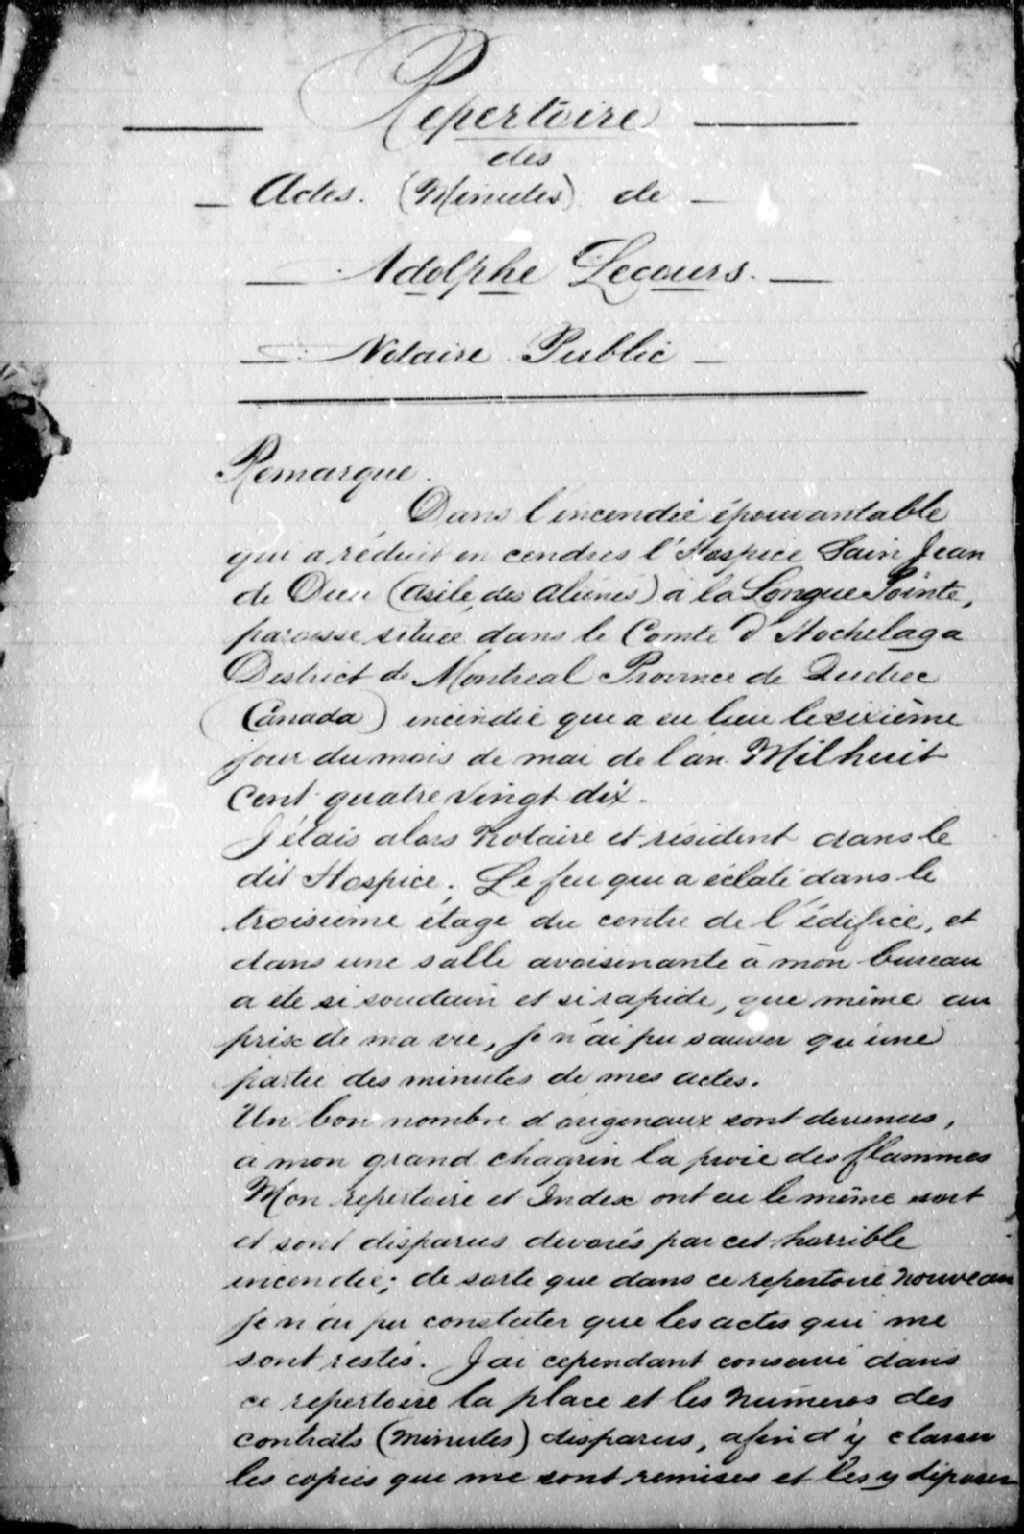 Repertoire
des
Actes. (Minutes) de
Adolphe Lecours.
Notaire Public
Remarque.
Dans l'incendie épouvantable
qui a réduit en cendres l'Hospice Sain Jean
de Dieu (Asile des Alienés) à la Longue Pointe,
paroisse située dans le Comté d'Hochelaga
District de Montreal Province de Quebec
(Canada) incendie qui a eu lieu le sixième
jour du mois de mai de l'an Mil huit
Cent quatre Vingt dix.
J'étais alors Notaire et résident dans le
dit Hospice. Le feu qui a éclaté dans le
troisième étage du centre de l'édifice, et
dans une salle avoisinante à mon bureau
a été si soudain et si rapide, que même au
prix de ma vie, je n'ai pu sauver qu'une
partie des minutes de mes actes.
Un bon nombre d'originaux sont devenus,
à mon grand chagrin la proie des flammes
Mon repertoire et Index ont eu le même sort
et sont disparus devorés par cet horrible
incendie; de sorte que dans ce repertoire nouveau
je n'ai pu constater que les actes qui me
sont restés. J'ai cependant conservé dans
ce repertoire la place et les Numeros des
contrats (Minutes) disparus, afin d'y classer
les copies que me sont remises et les y déposer